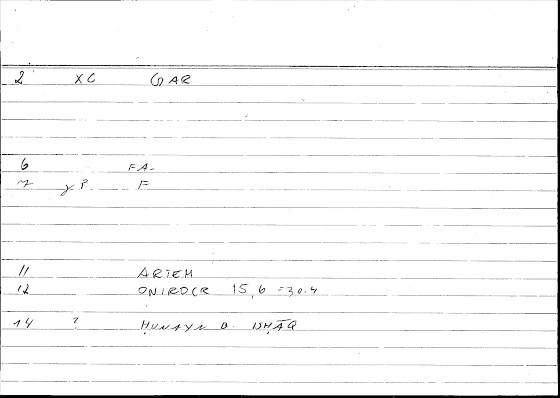 2 XC GAR
6 FA.
7 γP. F
11 ARTEM
12 ONIROCR 15,6 =30.4
14 ? ḤUNAYN B. ISḤĀQ